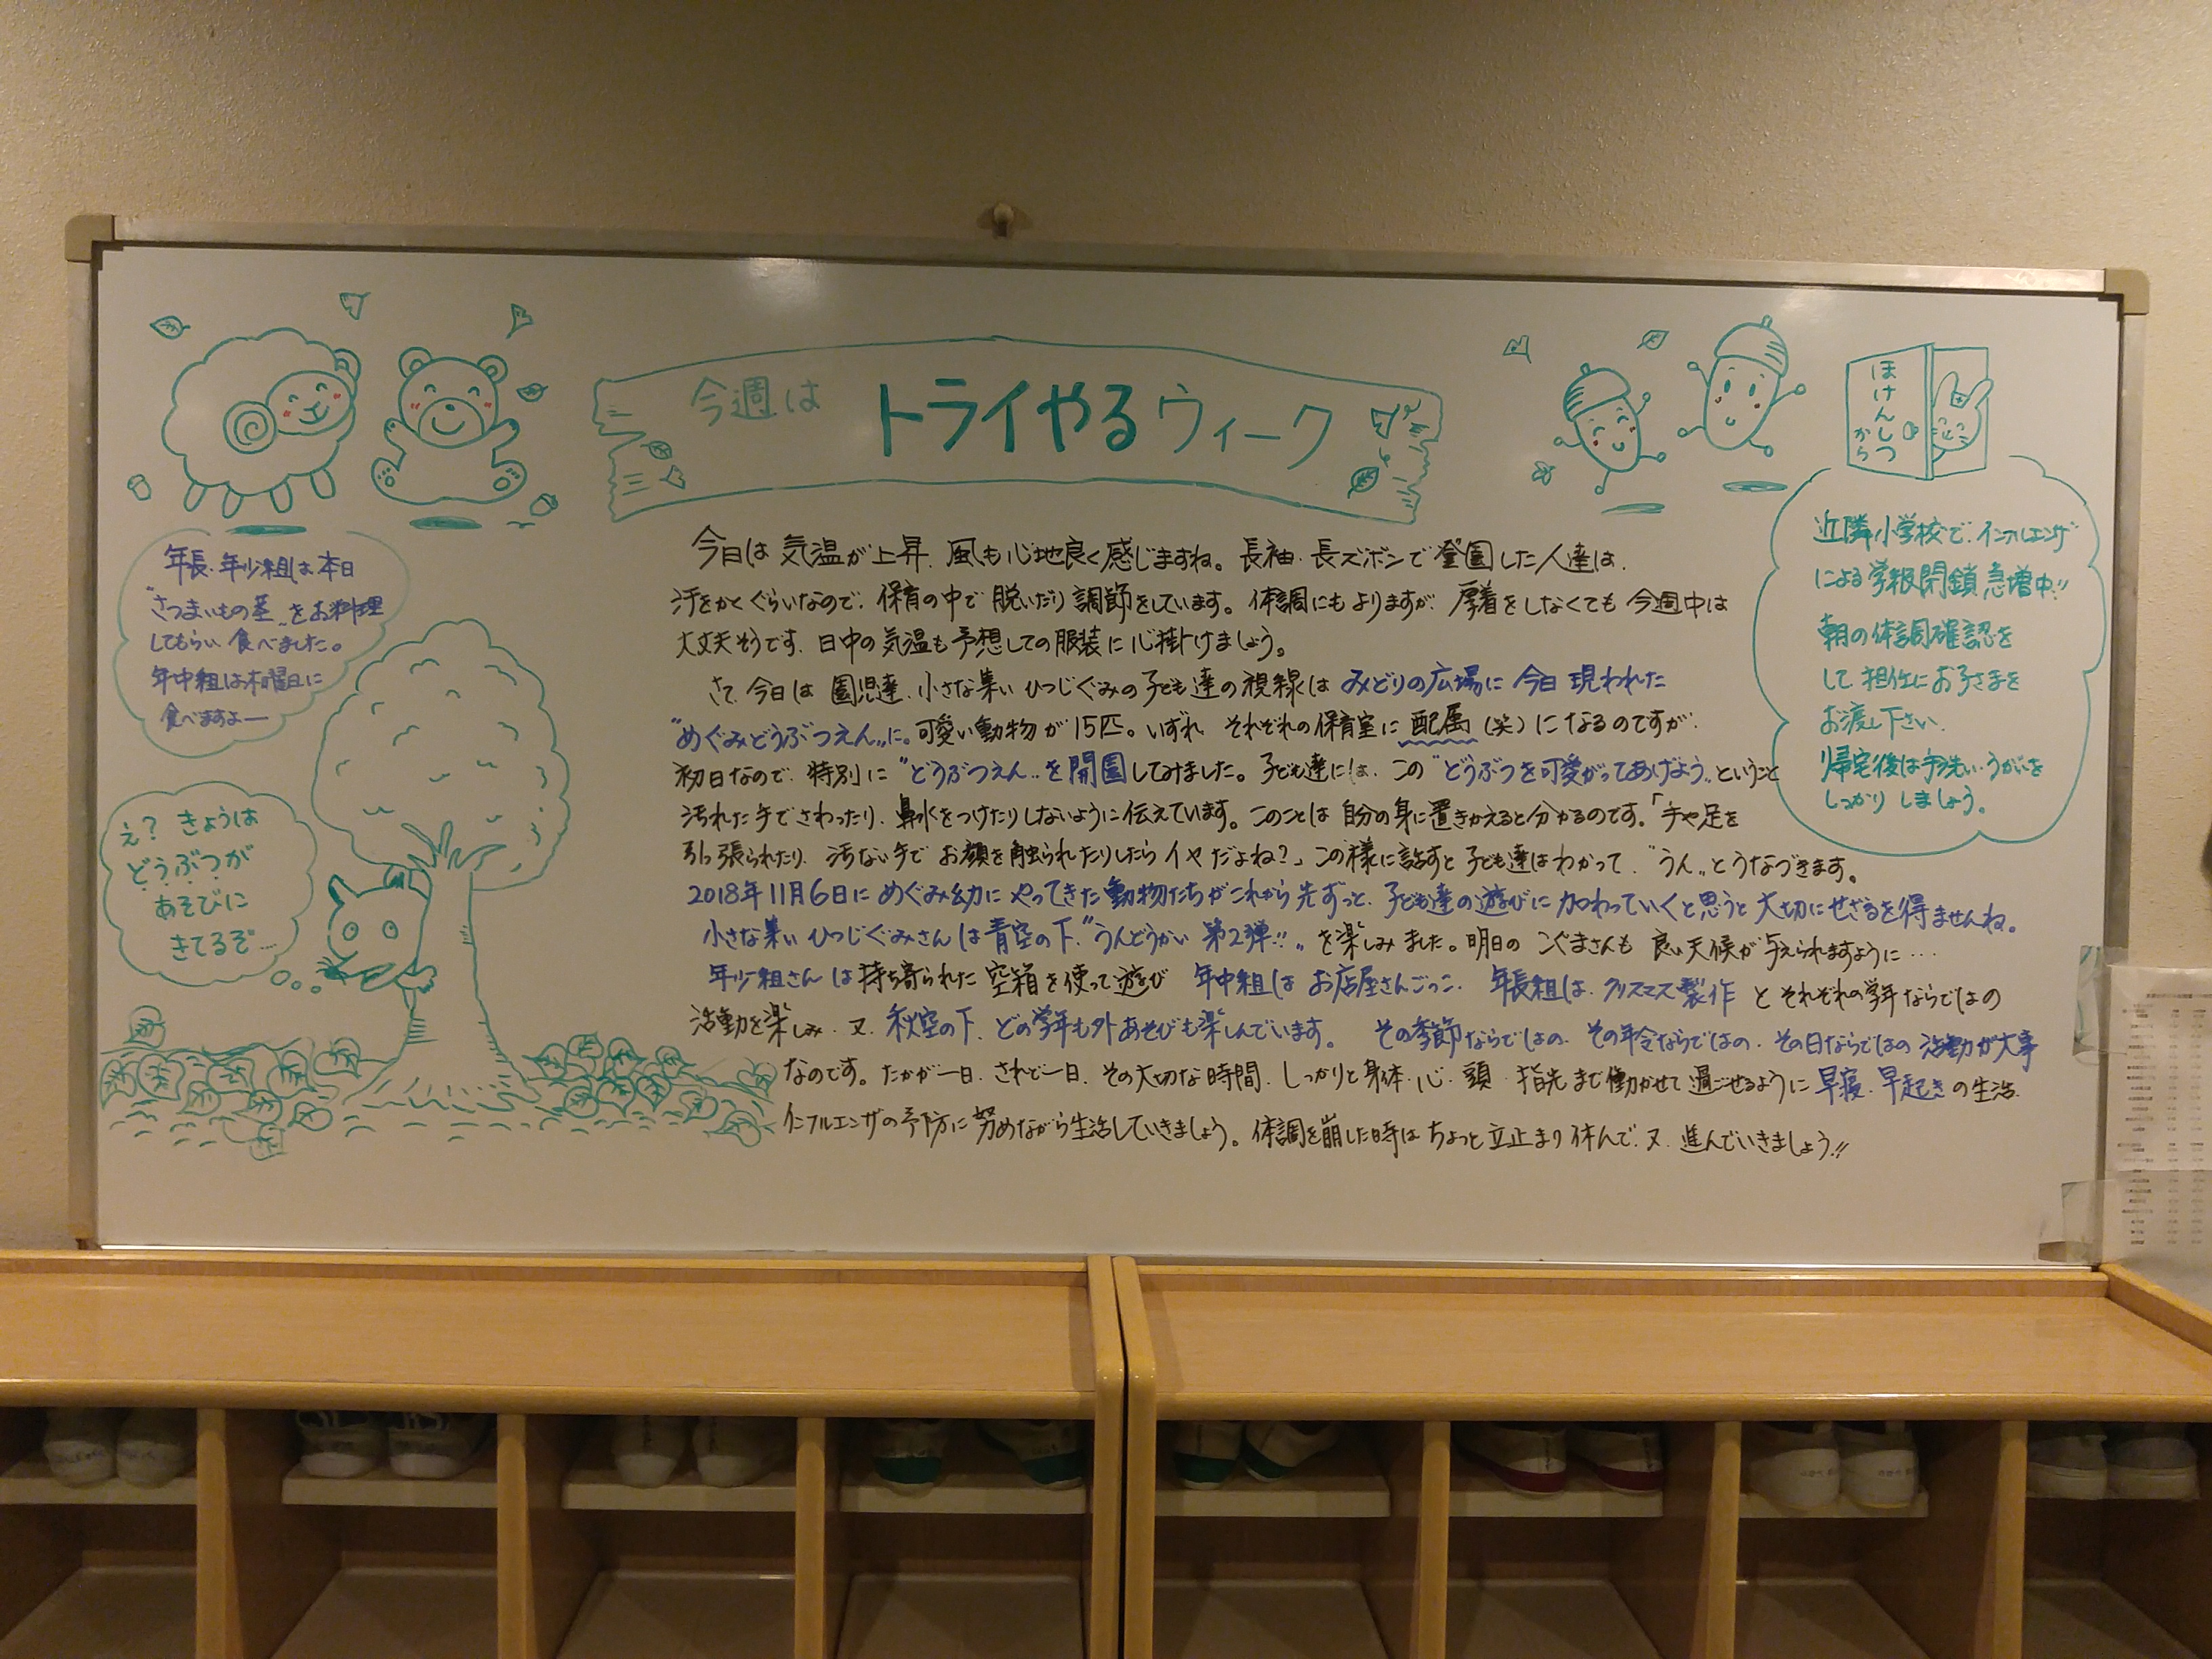 今週は トライやるウィーク
ほけんしつ
から
年長、年少組は本日
"さつまいもの茎"をお料理
してもらい食べました。
年中組は木曜日に
食べますよー
え？きょうは
どうぶつが
あそびに
きてるぞ…
今日は気温が上昇、風も心地良く感じますね。長袖・長ズボンで登園した人達は、
汗をかくぐらいなので、保育の中で脱いだり調節をしています。体調にもよりますが、厚着をしなくても今週中は
大丈夫そうです。日中の気温も予想しての服装に心掛けましょう。
さて、今日は園児達、小さな集いひつじぐみの子ども達の視線はみどりの広場に今日現われた
"めぐみどうぶつえん"に。可愛い動物が15匹。いずれ、それぞれの保育室に配属(笑)になるのですが、
初日なので、特別に"どうぶつえん"を開園してみました。子ども達には、この"どうぶつを可愛がってあげよう"ということ
汚れた手でさわったり、鼻水をつけたりしないように伝えています。このことは自分の身に置きかえると分かるのです。「手や足を
引っ張られたり、汚ない手でお顔を触られたりしたらイヤだよね？」この様に話すと子ども達はわかって、"うん"とうなづきます。
2018年11月6日にめぐみ幼にやってきた動物たちがこれから先ずっと、子ども達の遊びに加わっていくと思うと大切にせざるを得ませんね。
小さな集いひつじぐみさんは青空の下、"うんどうかい 第2弾!!"を楽しみました。明日のこぐまさんも良い天候が与えられますように…
年少組さんは持ち寄られた空箱を使って遊び 年中組はお店屋さんごっこ、年長組は、クリスマス製作とそれぞれの学年ならではの
活動を楽しみ、又、秋空の下、どの学年も外あそびも楽しんでいます。その季節ならではの、その年令ならではの、その日ならではの活動が大事
なのです。たかが一日、されど一日、その大切な時間、しっかりと身体、心、頭、指先まで働かせて過ごせるように早寝、早起きの生活、
インフルエンザの予防に努めながら生活していきましょう。体調を崩した時はちょっと立止まり休んで、又、進んでいきましょう!!
近隣小学校で、インフルエンザ
による学級閉鎖急増中!!
朝の体調確認を
して、担任にお子さまを
お渡し下さい。
帰宅後は手洗い・うがいを
しっかりしましょう。